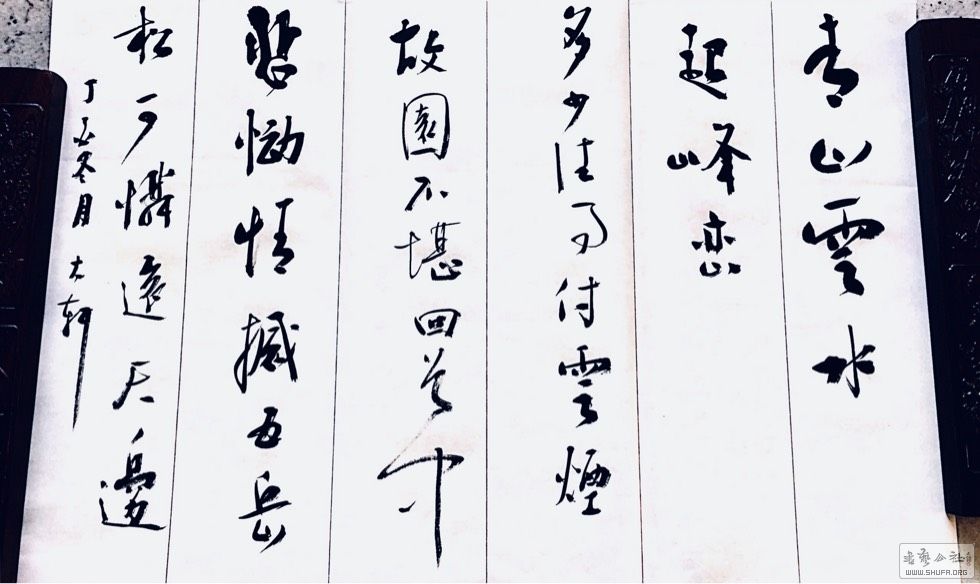 青山雲水
起峰巒
多少往事付雲煙
故園不堪回首
悲慟情撼五岳
松可憐遠天邊
丁亥冬月 大軒
書藝公社
WWW.SHUFA.ORG